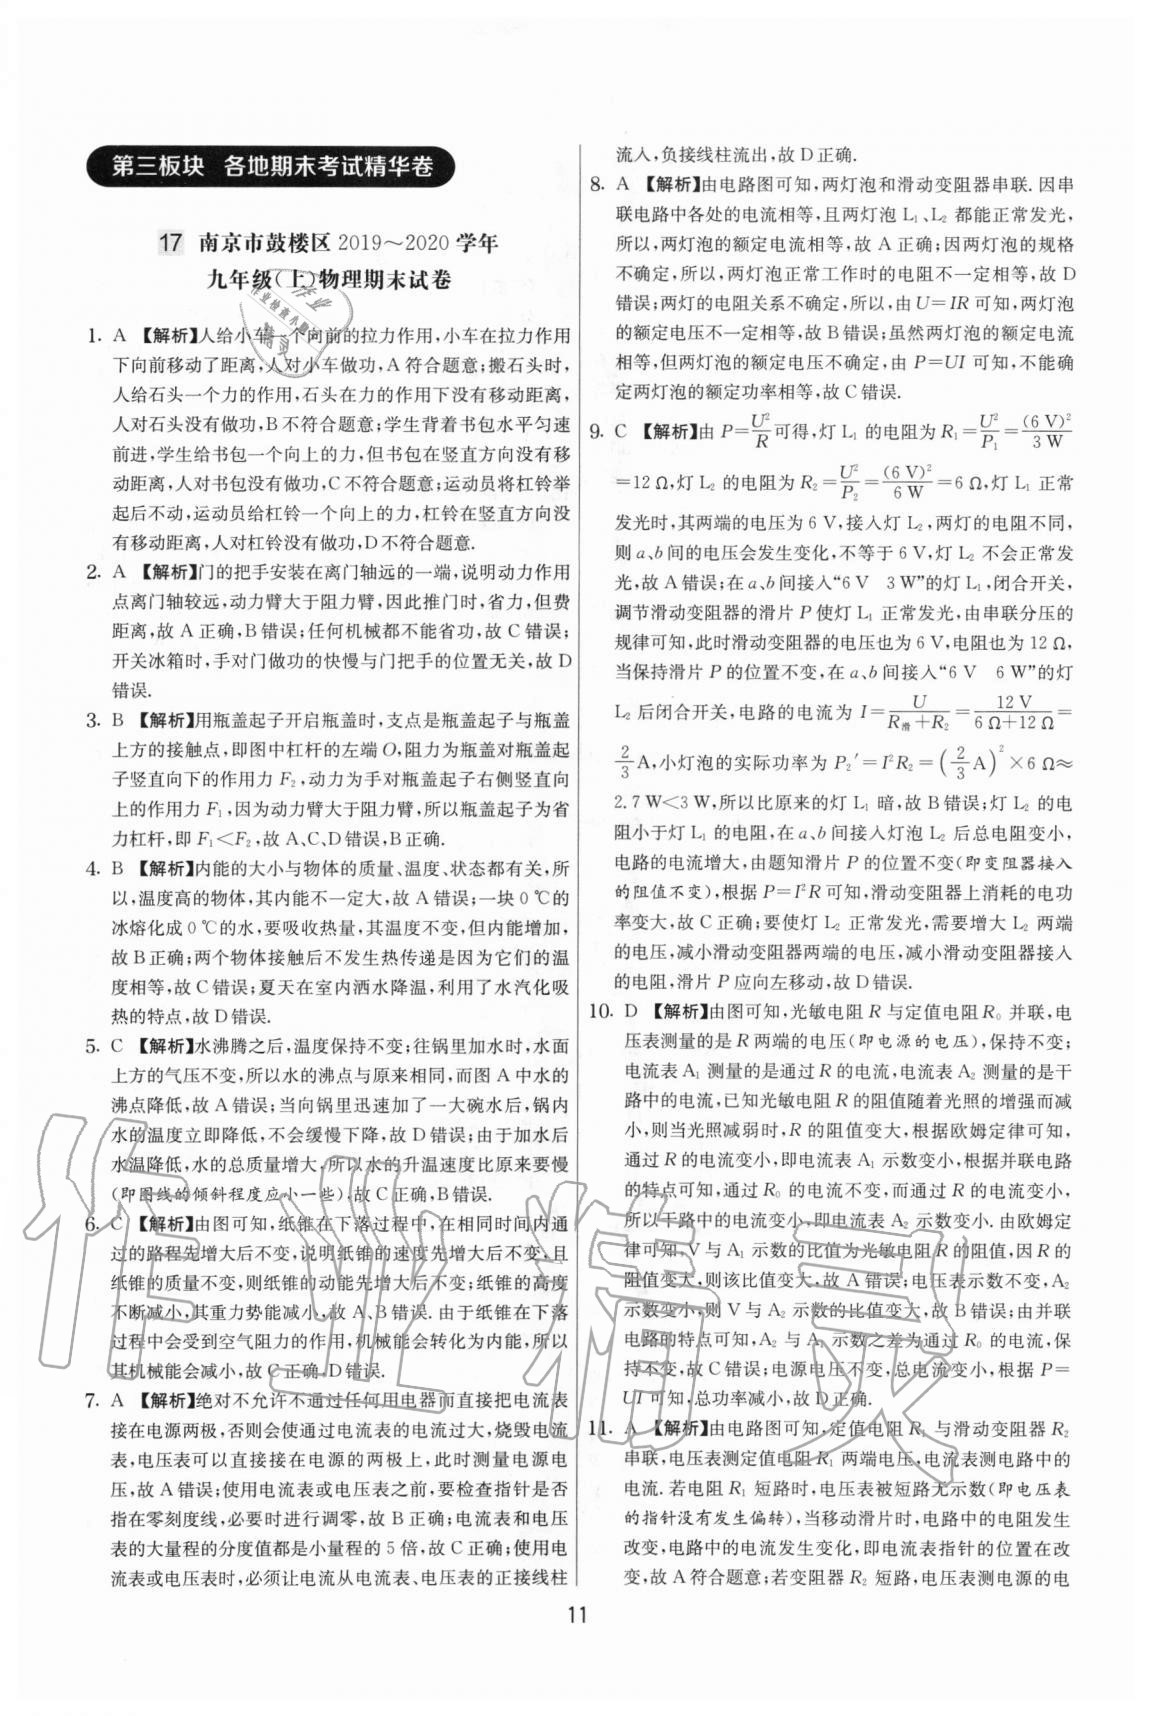 第三板块 各地期末考试精华卷
17 南京市鼓楼区2019～2020学年
九年级(上)物理期末试卷
1. A 【解析】人给小车一个向前的拉力作用,小车在拉力作用
下向前移动了距离,人对小车做功,A符合题意;搬石头时,
人给石头一个力的作用,石头在力的作用下没有移动距离,
人对石头没有做功,B不符合题意;学生背着书包水平匀速
前进,学生给书包一个向上的力,但书包在竖直方向没有移
动距离,人对书包没有做功,C不符合题意;运动员将杠铃举
起后不动,运动员给杠铃一个向上的力,杠铃在竖直方向没
有移动距离,人对杠铃没有做功,D不符合题意.
2. A 【解析】门的把手安装在离门轴远的一端,说明动力作用
点离门轴较远,动力臂大于阻力臂,因此推门时,省力,但费
距离,故A正确,B错误;任何机械都不能省功,故C错误;
开关冰箱时,手对门做功的快慢与门把手的位置无关,故D
错误.
3. B 【解析】用瓶盖起子开启瓶盖时,支点是瓶盖起子与瓶盖
上方的接触点,即图中杠杆的左端O,阻力为瓶盖对瓶盖起
子竖直向下的作用力F₂,动力为手对瓶盖起子右侧竖直向
上的作用力F₁,因为动力臂大于阻力臂,所以瓶盖起子为省
力杠杆,即F₁<F₂,故A、C、D错误,B正确.
4. B 【解析】内能的大小与物体的质量、温度、状态都有关,所
以,温度高的物体,其内能不一定大,故A错误;一块0℃的
冰熔化成0℃的水,要吸收热量,其温度不变,但内能增加,
故B正确;两个物体接触后不发生热传递是因为它们的温
度相等,故C错误;夏天在室内洒水降温,利用了水汽化吸
热的特点,故D错误.
5. C 【解析】水沸腾之后,温度保持不变;往锅里加水时,水面
上方的气压不变,所以水的沸点与原来相同,而图A中水的
沸点降低,故A错误;当向锅里迅速加了一大碗水后,锅内
水的温度立即降低,不会缓慢下降,故D错误;由于加水后
水温降低,水的总质量增大,所以水的升温速度比原来要慢
(即图线的倾斜程度应小一些),故C正确,B错误.
6. C 【解析】由图可知,纸锥在下落过程中,在相同时间内通
过的路程先增大后不变,说明纸锥的速度先增大后不变,且
纸锥的质量不变,则纸锥的动能先增大后不变;纸锥的高度
不断减小,其重力势能减小,故A、B错误.由于纸锥在下落
过程中会受到空气阻力的作用,机械能会转化为内能,所以
其机械能会减小,故C正确,D错误.
7. A 【解析】绝对不允许不通过任何用电器而直接把电流表
接在电源两极,否则会使通过电流表的电流过大,烧毁电流
表,电压表可以直接接在电源的两极上,此时测量电源电
压,故A错误;使用电流表或电压表之前,要检查指针是否
指在零刻度线,必要时进行调零,故B正确;电流表和电压
表的大量程的分度值都是小量程的5倍,故C正确;使用电
流表或电压表时,必须让电流从电流表、电压表的正接线柱
流入,负接线柱流出,故D正确.
8. A 【解析】由电路图可知,两灯泡和滑动变阻器串联.因串
联电路中各处的电流相等,且两灯泡L₁、L₂都能正常发光,
所以,两灯泡的额定电流相等,故A正确;因两灯泡的规格
不确定,所以,两灯泡正常工作时的电阻不一定相等,故D
错误;两灯的电阻关系不确定,所以,由U=IR可知,两灯泡
的额定电压不一定相等,故B错误;虽然两灯泡的额定电流
相等,但两灯泡的额定电压不确定,由P=UI可知,不能确
定两灯泡的额定功率相等,故C错误.
9. C 【解析】由P=U²/R可得,灯L₁的电阻为R₁=U²/P₁=(6 V)²/3 W
=12 Ω,灯L₂的电阻为R₂=U²/P₂=(6 V)²/6 W=6 Ω,灯L₁正常
发光时,其两端的电压为6 V,接入灯L₂,两灯的电阻不同,
则a、b间的电压会发生变化,不等于6 V,灯L₂不会正常发
光,故A错误;在a、b间接入“6 V 3 W”的灯L₁,闭合开关,
调节滑动变阻器的滑片P使灯L₁正常发光,由串联分压的
规律可知,此时滑动变阻器的电压也为6 V,电阻也为12 Ω,
当保持滑片P的位置不变,在a、b间接入“6 V 6 W”的灯
L₂后闭合开关,电路的电流为I=U/(R滑+R₂)=12 V/(6 Ω+12 Ω)=
2/3 A,小灯泡的实际功率为P₂′=I²R₂=(2/3 A)²×6 Ω≈
2.7 W<3 W,所以比原来的灯L₁暗,故B错误;灯L₂的电
阻小于灯L₁的电阻,在a、b间接入灯泡L₂后总电阻变小,
电路的电流增大,由题知滑片P的位置不变(即变阻器接入
的阻值不变),根据P=I²R可知,滑动变阻器上消耗的电功
率变大,故C正确;要使灯L₂正常发光,需要增大L₂两端
的电压,减小滑动变阻器两端的电压,减小滑动变阻器接入
的电阻,滑片P应向左移动,故D错误.
10. D 【解析】由图可知,光敏电阻R与定值电阻R₀并联,电
压表测量的是R两端的电压(即电源的电压),保持不变;
电流表A₁测量的是过R的电流,电流表A₂测量的是干
路中的电流,已知光敏电阻R的阻值随着光照的增强而减
小,则当光照减弱时,R的阻值变大,根据欧姆定律可知,
通过R的电流变小,即电流表A₁示数变小,根据并联电路
的特点可知,通过R₀的电流不变,而通过R的电流变小,
所以干路中的电流变小,即电流表A₂示数变小.由欧姆定
律可知,V与A₁示数的比值为光敏电阻R的阻值,因R的
阻值变大,则该比值变大,故A错误;电压表示数不变,A₂
示数变小,则V与A₂示数的比值变大,故B错误;由并联
电路的特点可知,A₂与A₁示数之差为通过R₀的电流,保
持不变,故C错误;电源电压不变,总电流变小,根据P=
UI可知,总功率减小,故D正确.
11. A 【解析】由电路图可知,定值电阻R₁与滑动变阻器R₂
串联,电压表测定值电阻R₁两端电压,电流表测电路中的
电流.若电阻R₁短路时,电压表被短路无示数(即电压表
的指针没有发生偏转),当移动滑片时,电路中的电阻发生
改变,电路中的电流发生变化,即电流表指针的位置在改
变,故A符合题意;若变阻器R₂短路,电压表测电源的电
11
作业精灵